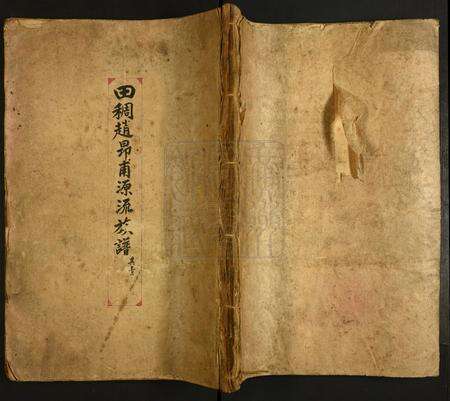 田稠趙昂甫源流族譜